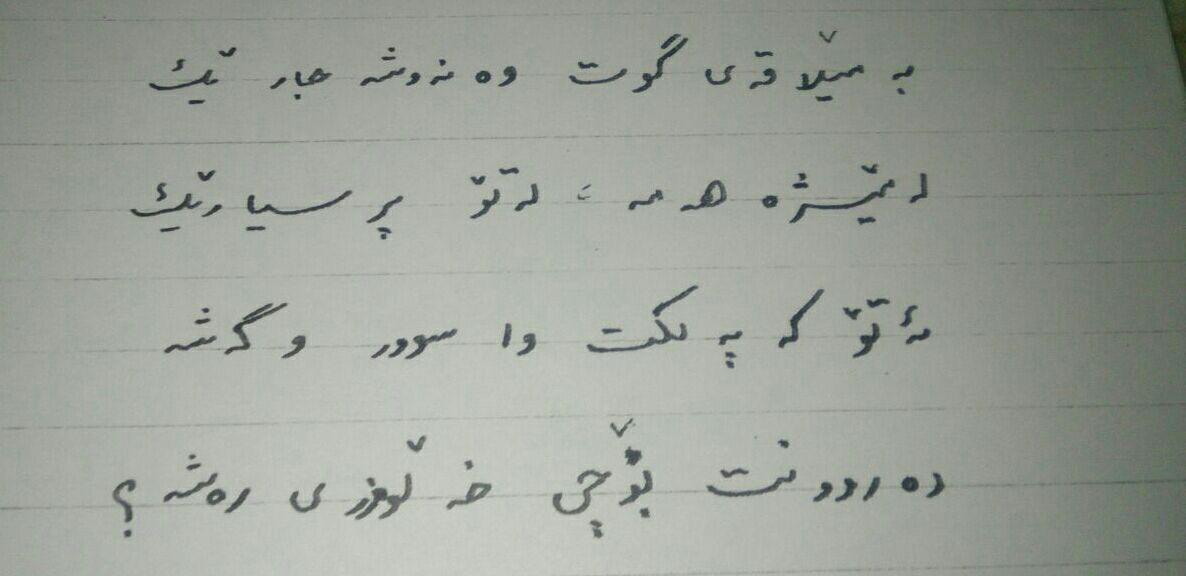 بە مێڵاقەی گوت وەنەوشە جارێک
لەمێژە هەمە : لەتۆ پرسیارێک
ئەتۆ کە پەلکت وا سوور و گەشە
دەروونت بۆچی خەڵووزی رەشە؟